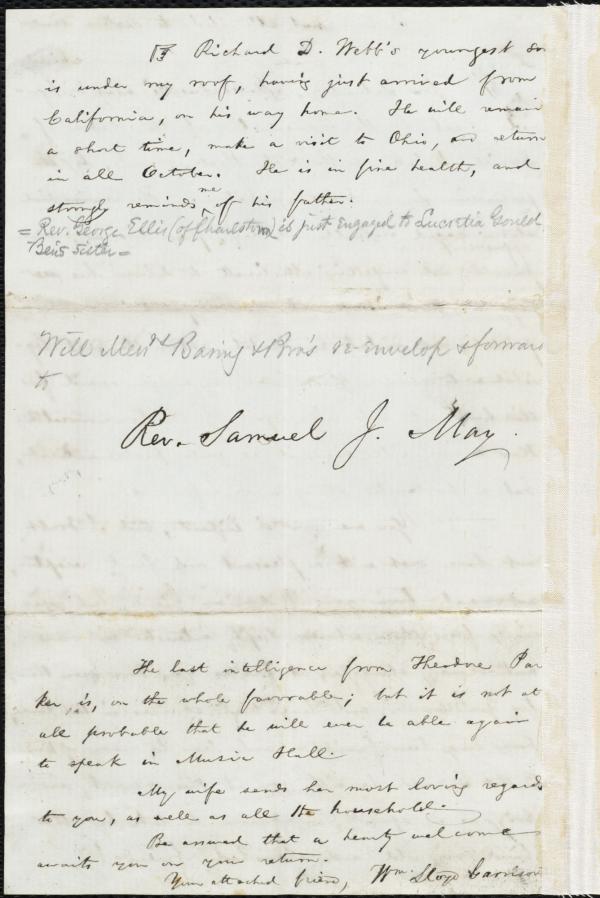 ☞ Richard D. Webb's youngest so
is under my roof, having just arrived from
California, on his way home. He will remain
a short time, make a visit to Ohio, and return
in all October. He is in fine health, and
strongly reminds me of his father.
= Rev. George Ellis (of Charlestown) is just engaged to Lucretia Gould
Ben's sister =
Will Mess<sup>rs</sup> Baring & Bro's re-envelop & forward
to
Rev. Samuel J. May.
The last intelligence from Theodore Par
ker, is, on the whole favorable; but it is not at
all probable that he will ever be able again
to speak in Music Hall.
My wife sends her most loving regards
to you, as well as all the household.
Be assured that a hearty welcome
awaits you on your return.
Your attached friend, Wm. Lloyd Garrison